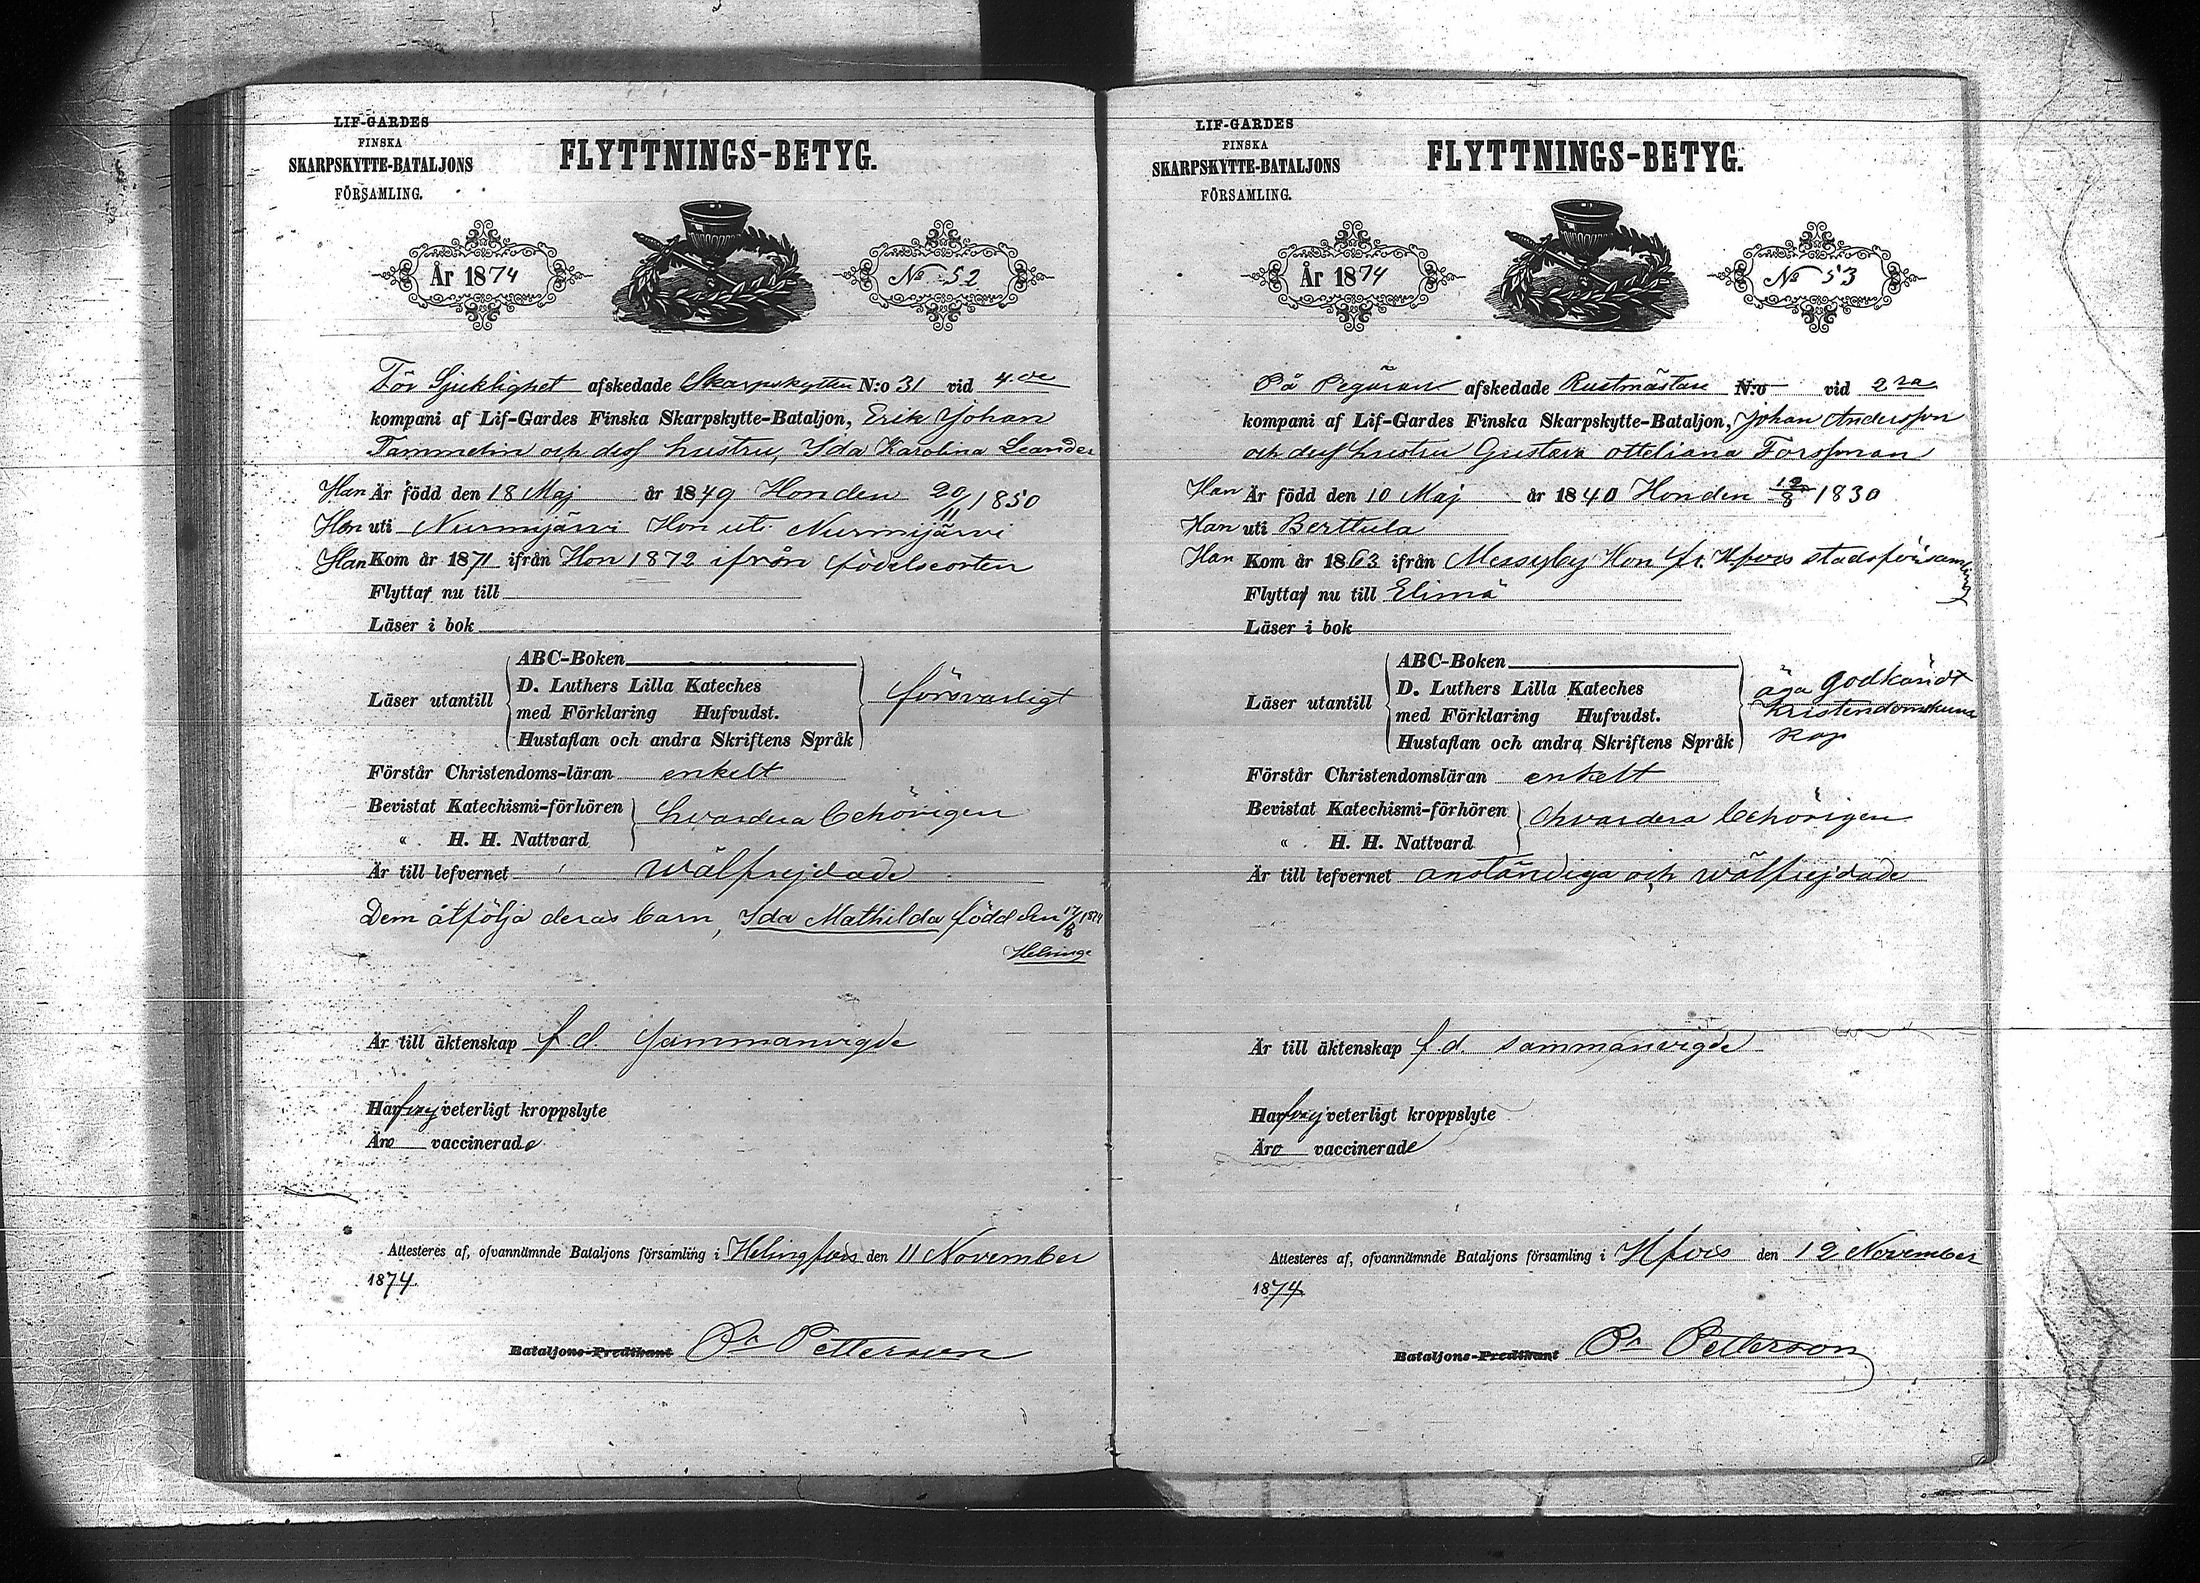 LIF-GARDES
FINSKA
SKARPSKYTTE-BATALJONS
FÖRSAMLING.
FLYTTNINGS-BETYG.
År 1874
No 52
För Sjuklighet afskedade Skarpskytten N:o 31 vid 4.de
kompani af Lif-Gardes Finska Skarpskytte-Bataljon, Erik Johan
Tammelin och dess hustru, Ida Karolina Leander
Han Är född den 18 Maj år 1849 Hon den 20/11 1850
Han uti Nurmijärvi Hon uti Nurmijärvi
Han Kom år 1871 ifrån Hon 1872 ifrån födelseorten
Flyttar nu till
Läser i bok
Läser utantill
ABC-Boken
D. Luthers Lilla Kateches
med Förklaring Hufvudst.
Hustaflan och andra Skriftens Språk
försvarligt
Förstår Christendoms-läran enkelt
Bevistat Katechismi-förhören
" H. H. Nattvard
hvardera behörigen
Är till lefvernet wälfrejdade
Dem åtfölja deras barn, Ida Mathilda född den 17/8 1874
Helsinge
Är till äktenskap f.d. sammanvigde
Har frey veterligt kroppslyte
Äro vaccinerade
Attesteres af, ofvannämnde Bataljons församling i Helsingfors den 11 November
1874.
Bataljons-Predikant Petterson
LIF-GARDES
FINSKA
SKARPSKYTTE-BATALJONS
FÖRSAMLING.
FLYTTNINGS-BETYG.
År 1874
No 53
På afskedade Rustmästare N:o vid 2ra
kompani af Lif-Gardes Finska Skarpskytte-Bataljon, Johan Andersson
och dess hustru Gustava Otteliana Forssman
Han Är född den 10 Maj år 1840 Hon den 12/8 1830
Han uti Berttula
Han Kom år 1863 ifrån Messuby Hon fr. Hfors stadsförsamling
Flyttar nu till Elimä
Läser i bok
Läser utantill
ABC-Boken
D. Luthers Lilla Kateches
med Förklaring Hufvudst.
Hustaflan och andra Skriftens Språk
äga godkändt
kristendomskuns
kap
Förstår Christendomsläran enkelt
Bevistat Katechismi-förhören
" H. H. Nattvard
hvardera behörigen
Är till lefvernet anständiga och wälfrejdade
Är till äktenskap f.d. sammanvigde
Har frey veterligt kroppslyte
Äro vaccinerade
Attesteres af, ofvannämnde Bataljons församling i Hfors den 12 November
1874
Bataljons-Predikant Petterson